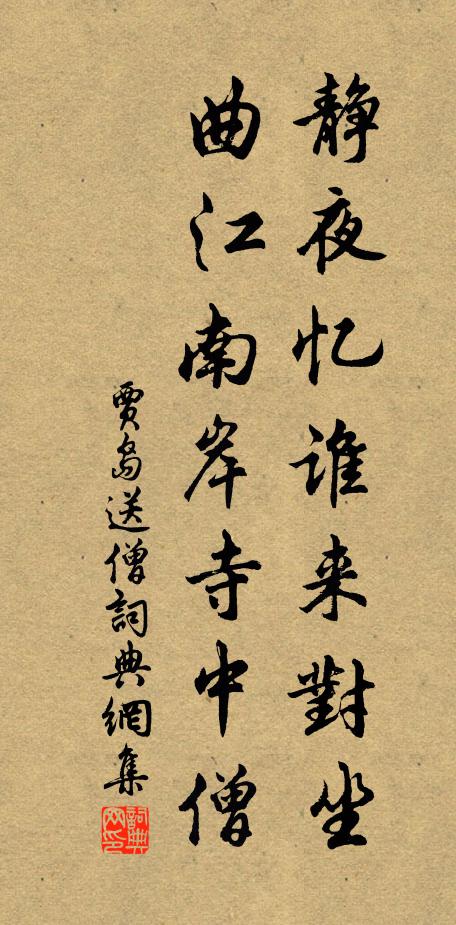 静夜忆谁来對坐
曲江南岸寺中僧
賈島送僧詞典網集
詞典网印